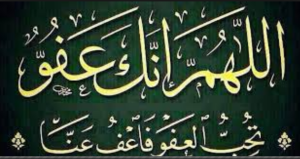 اللَّهُمَّ اِنَّكَ عَفُوٌّ
تُحِبُّ الْعَفْوَ فَاعْفُ عَنَّا